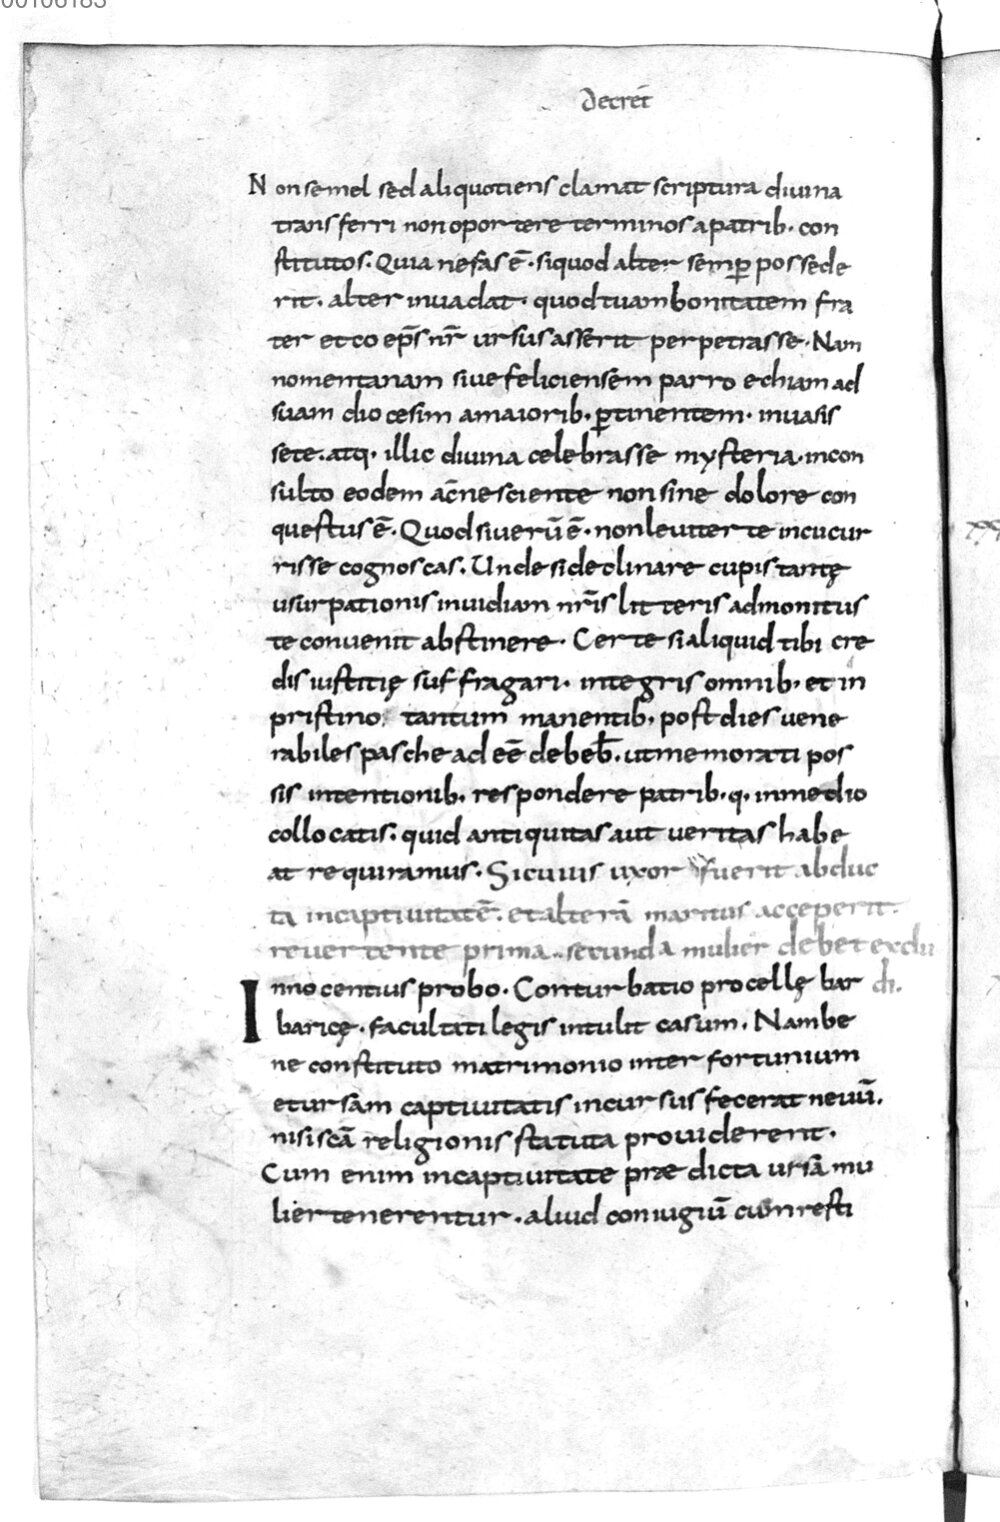 Decret̄
Non semel sed aliquotiens clamat scriptura diuina
transferri non oportere terminos a patrib· con
stitutos. Quia nefas ē· siquod alter semp̱ possede
rit· alter inuadat· quod tuam bonitatem fra
ter et co ep̄s nr̄ ursus asserit perpetrasse· Nam
nomentanam siue feliciensem parro echiam ad
suam diocesim a maiorib· p̱tinentem· inuasis
sete· atq· illic diuina celebrasse mysteria· incon
sulto eodem ac nesciente non sine dolore con
questus ē· Quod si uerū ē· non leuiter te incucur
risse cognoscas. Unde si declinare cupis tantę
usurpationis inuidiam nr̄is litteris admonitus
te conuenit abstinere· Certe si aliquid tibi cre
dis iustitię suffragari· integris omnib· et in
pristino tantum manentib· post dies uene
rabiles pasche ad eē debeb̄· ut memorati pos
sis intentionib· respondere patrib· q· in medio
collocatis· quid antiquitas aut ueritas habe
at requiramus· Si cuius uxor fuerit abduc
ta in captiuitatē· et alterā maritus acceperit·
reuertente prima· secunda mulier debet exclu
di.
Innocentius probo· Conturbatio procellę bar
baricę· facultati legis intulit casum. Nam be
ne constituto matrimonio inter fortunium
et ursam captiuitatis incursus fecerat neuū·
nisi scā religionis statuta prouiderent·
Cum enim in captiuitate prædicta ursā mu
lier tenerentur· aliud coniugiū cum resti